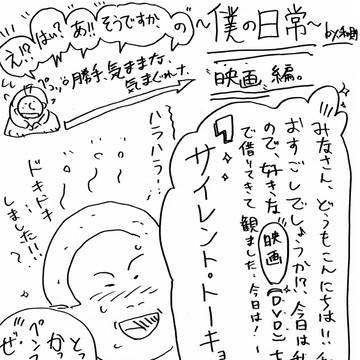 え!?はい?あ!!そうですか の
〜僕の日常〜
映画編。
勝手、気ままな、
気まぐれな
みなさん、どうもこんにちは!!
おすごしでしょうか!?、今日は
ので、好きな映画(DVD)
で借りてきて観ました。今日は!
「サイレント・トーキョ
ハラハラ…
ドキドキ
しました!!